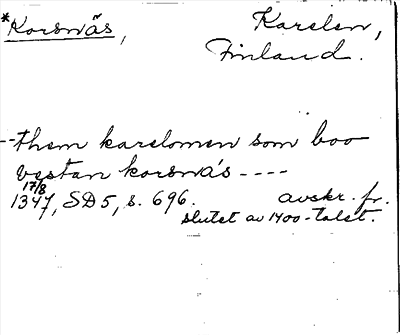 *Korsnäs, Karelen,
Finland.
-- them karelomen som boo
vestan korsnäs ----
17/8
1347, SD 5, s. 696. avskr. fr.
slutet av 1400-talet.